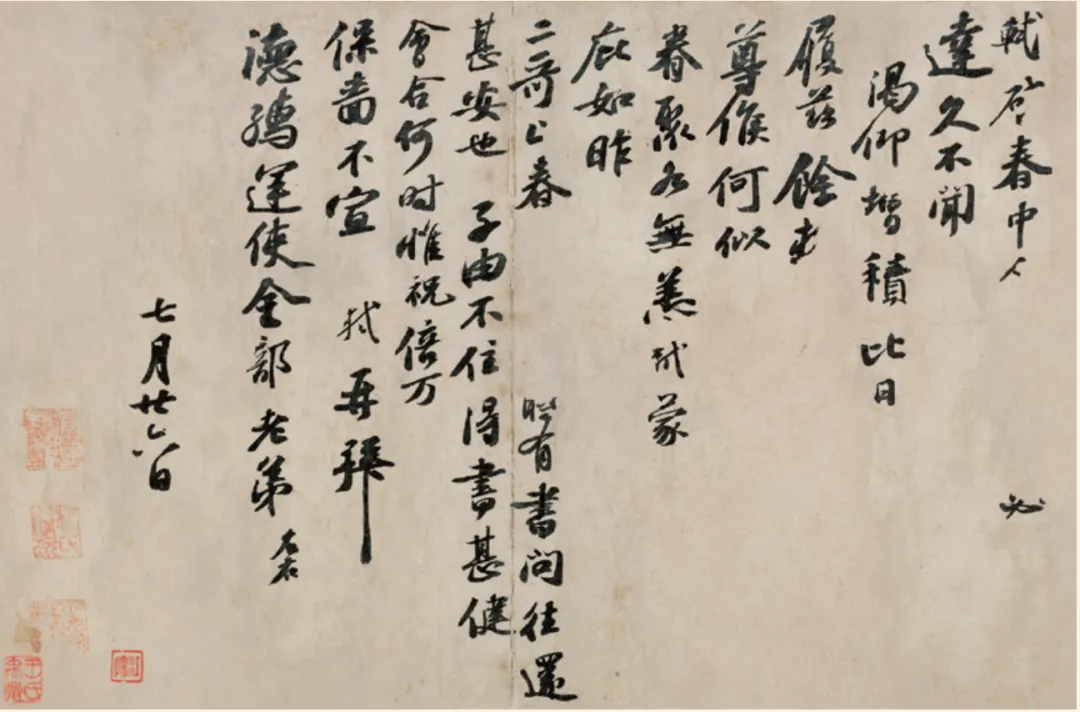 軾啓春中人必
達久不聞
渴仰增積比日
履茲餘热
尊候何似
眷聚各無恙軾蒙
庇如昨
二哥上春有書問往還
甚安也子由不住得書甚健
會合何时惟祝倍万
保嗇不宣軾再拜
德孺運使金部老弟左右
七月廿六日